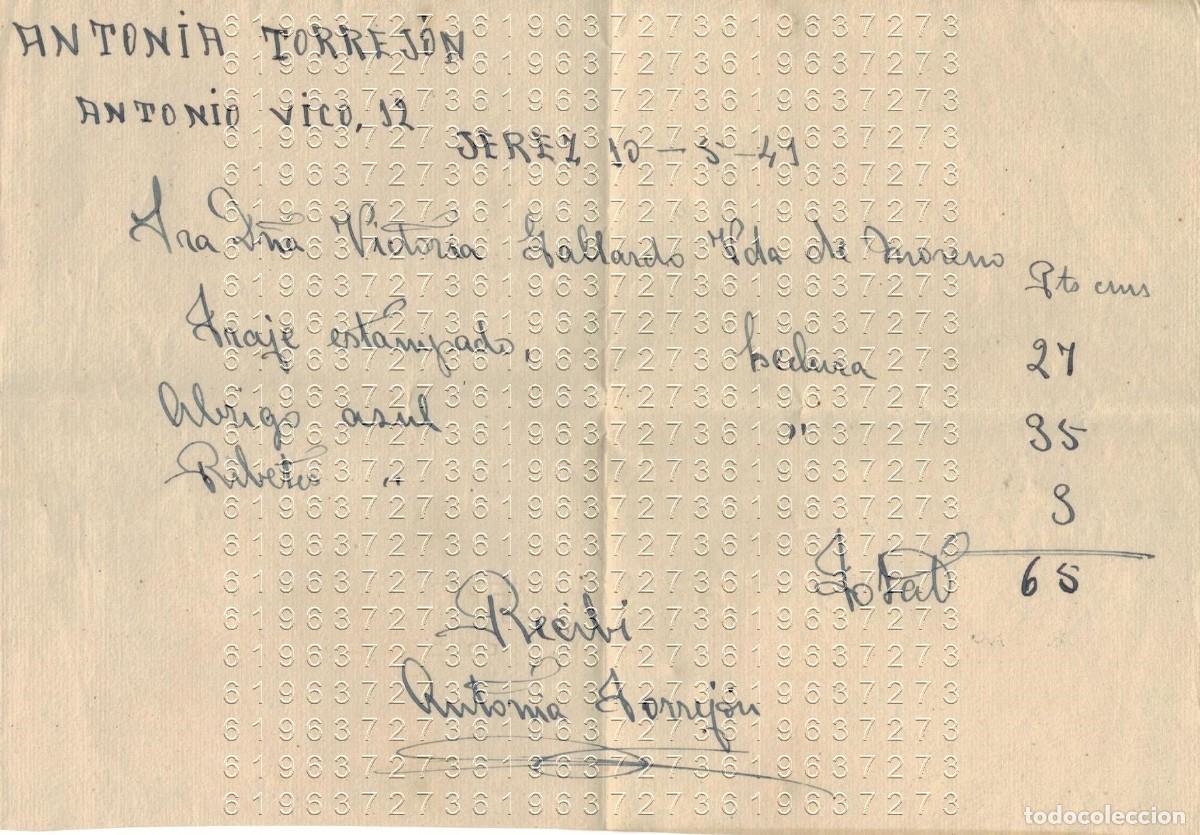 ANTONIA TORREJÓN
ANTONIO VICO, 12
JEREZ 10-5-41
Sra Dña Victoria Gallardo Vda de Moreno
Pts cms
Traje estampado, hechura 27
Abrigo asul " 35
Ribetes " 3
Total 65
Recibi
Antonia Torrejón
619637273619637273619637273
todocoleccion